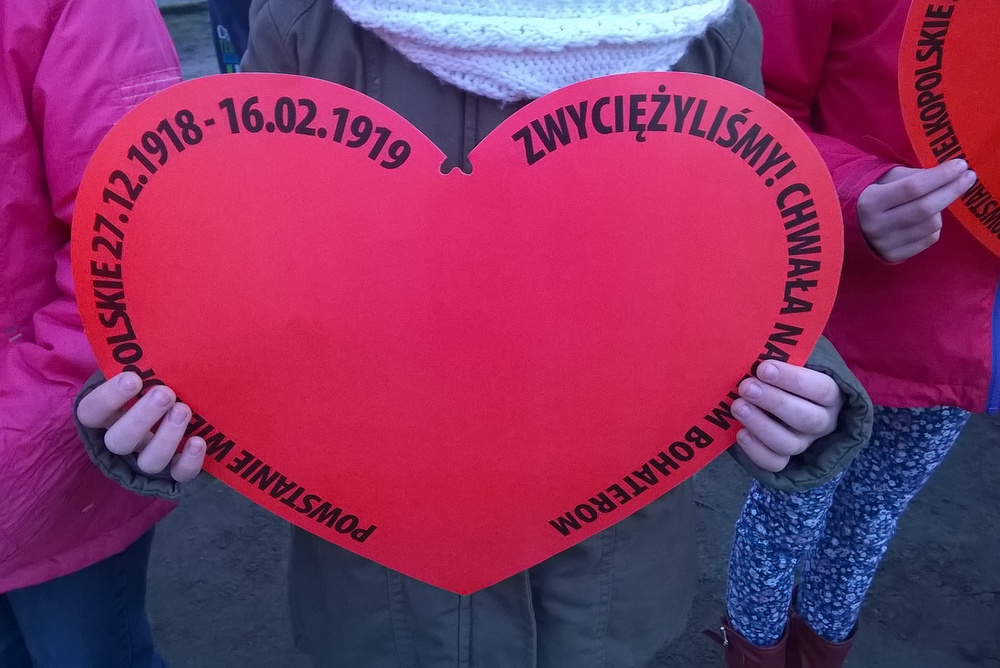 POWSTANIE WIELKOPOLSKIE 27.12.1918 - 16.02.1919
ZWYCIĘŻYLIŚMY! CHWAŁA NASZYM BOHATEROM
POWSTANIE WIELKOPOLSKIE